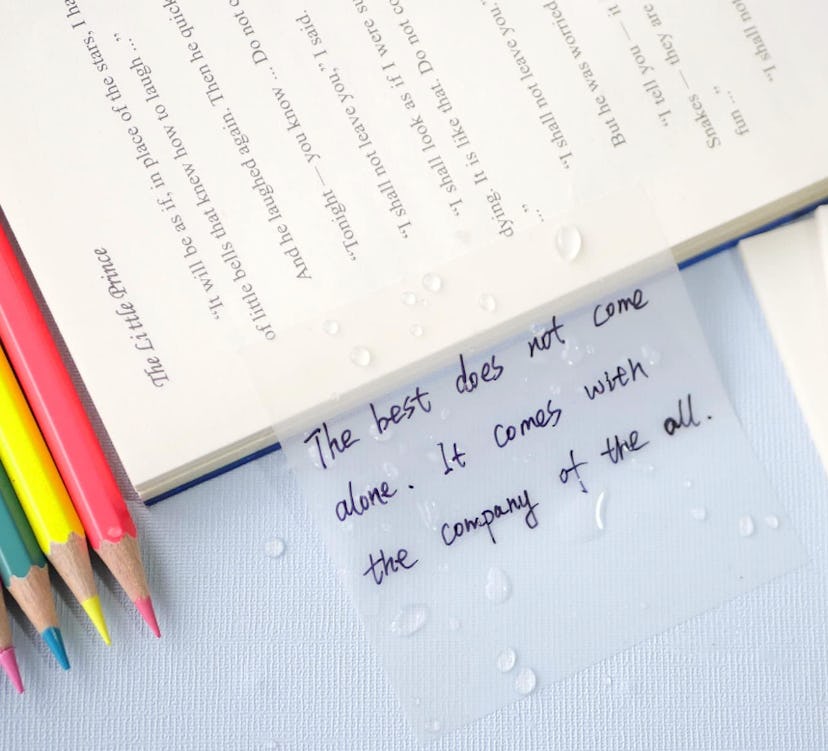 The Little Prince
"It will be as if, in place of the stars, I ha
of little bells that knew how to laugh ..."
And he laughed again. Then he quick
"Tonight — you know ... Do not c
"I shall not leave you," I said.
"I shall look as if I were su
dying. It is like that. Do not co
..."
"I shall not leave you."
But he was worried
"I tell you — it
Snakes — they are
fun ..."
"I shall not
The best does not come
alone. It comes with
the company of the all.